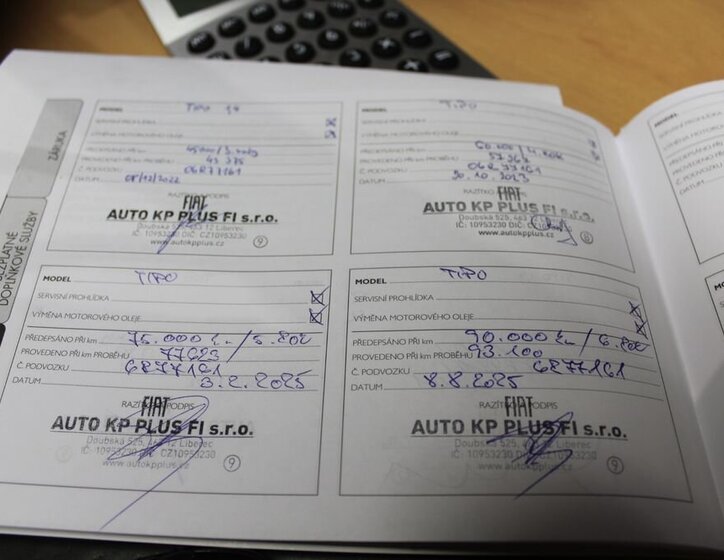 ZÁRUKA
DOPLŇKOVÉ SLUŽBY
MODEL TIPO
SERVISNÍ PROHLÍDKA
VÝMĚNA MOTOROVÉHO OLEJE
PŘEDEPSÁNO PŘI km 45000/3.roky
PROVEDENO PŘI km PROBĚHU 43 375
Č. PODVOZKU 06R77161
DATUM 08/12/2022
RAZÍTKO PODPIS
FIAT
AUTO KP PLUS FI s.r.o.
Doubská 525, 463 12 Liberec
IČ: 10953230 DIČ: CZ10953230
www.autokpplus.cz
9
MODEL TIPO
SERVISNÍ PROHLÍDKA
VÝMĚNA MOTOROVÉHO OLEJE
PŘEDEPSÁNO PŘI km 60.000 / 4.ROK
PROVEDENO PŘI km PROBĚHU
Č. PODVOZKU 06R77161
DATUM 30.10.2023
RAZÍTKO PODPIS
FIAT
AUTO KP PLUS FI s.r.o.
Doubská 525, 463
IČ: 10953230 DIČ: CZ10953230
www.autokpplus.cz
MODEL TIPO
SERVISNÍ PROHLÍDKA
VÝMĚNA MOTOROVÉHO OLEJE
PŘEDEPSÁNO PŘI km 75.000 km/5.ROK
PROVEDENO PŘI km PROBĚHU 77623
Č. PODVOZKU 6R77161
DATUM 3.2.2025
RAZÍTKO PODPIS
FIAT
AUTO KP PLUS FI s.r.o.
Doubská 525, 463 12 Liberec
IČ: 10953230 DIČ: CZ10953230
www.autokpplus.cz
9
MODEL TIPO
SERVISNÍ PROHLÍDKA
VÝMĚNA MOTOROVÉHO OLEJE
PŘEDEPSÁNO PŘI km 90.000 km/6.ROK
PROVEDENO PŘI km PROBĚHU 93.100
Č. PODVOZKU 6R77161
DATUM 8.8.2025
RAZÍTKO PODPIS
FIAT
AUTO KP PLUS FI s.r.o.
Doubská 525, 463 12 Liberec
IČ: 10953230 DIČ: CZ10953230
www.autokpplus.cz
9